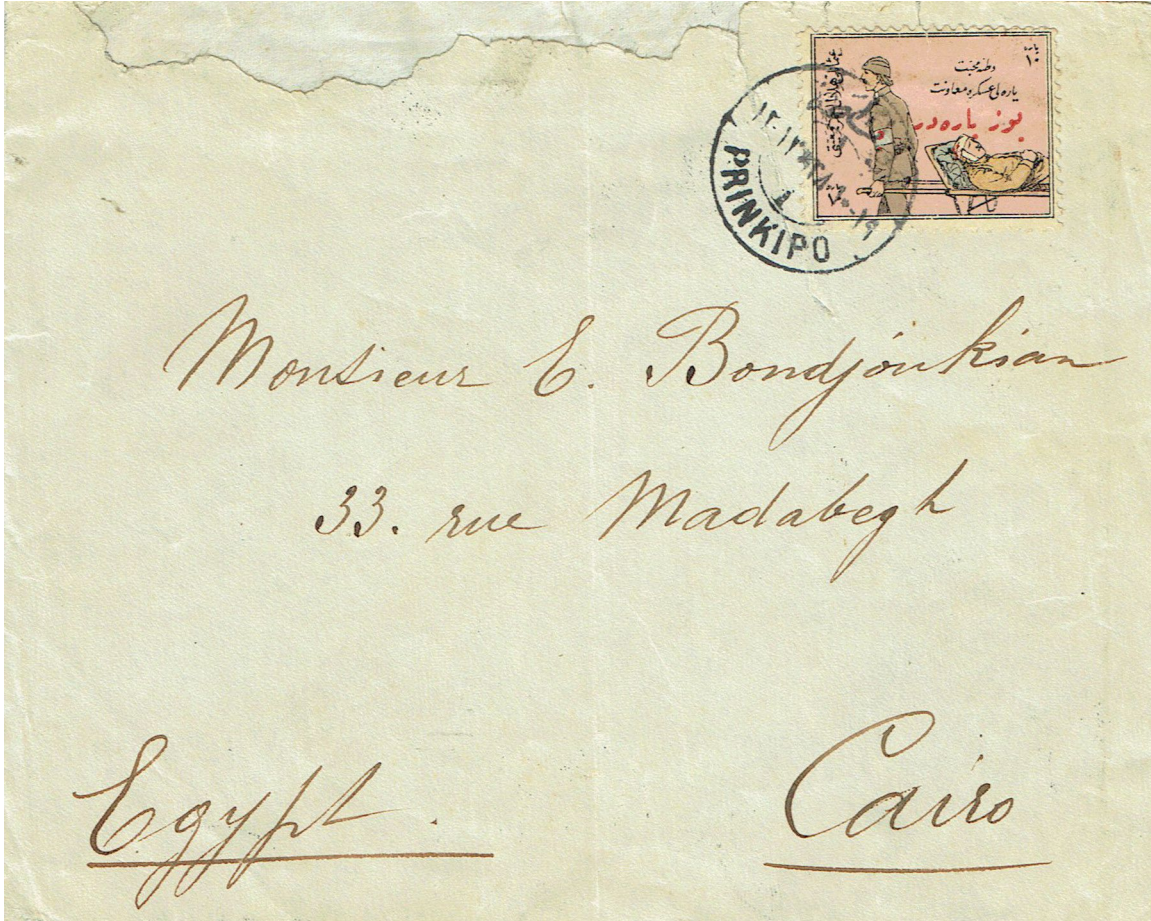 پاره
١٠
وطنه محبت
یاره لی عسکره معاونت
یوز پاره در
PRINKIPO
1
Monsieur E. Bondjoukian
33. rue Madabegh
Egypt.
Cairo